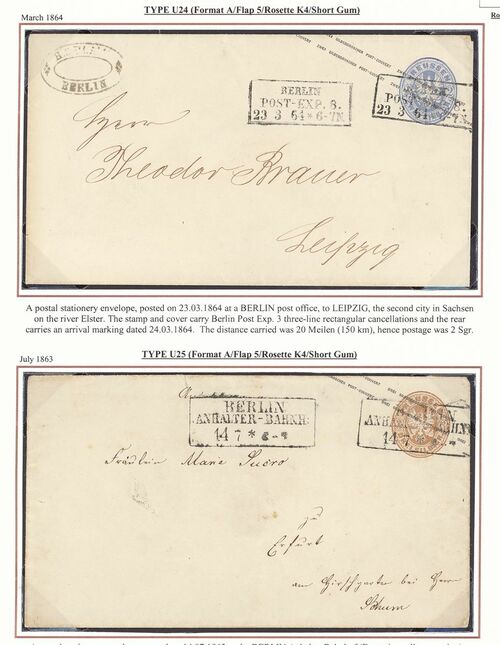 TYPE U24 (Format A/Flap 5/Rosette K4/Short Gum)
March 1864
Ro
BERLIN
BERLIN
POST-EXP. 8.
23 3 64 * 6-7N.
POST
23 3 64
Herrn
Theodor Brauer
Leipzig
A postal stationery envelope, posted on 23.03.1864 at a BERLIN post office, to LEIPZIG, the second city in Sachsen
on the river Elster. The stamp and cover carry Berlin Post Exp. 3 three-line rectangular cancellations and the rear
carries an arrival marking dated 24.03.1864. The distance carried was 20 Meilen (150 km), hence postage was 2 Sgr.
TYPE U25 (Format A/Flap 5/Rosette K4/Short Gum)
July 1863
BERLIN
ANHALTER-BAHNH.
14 7 *
14
Fräulein Marie Sucro
zu
Erfurt
am Hirschgarten bei Herrn